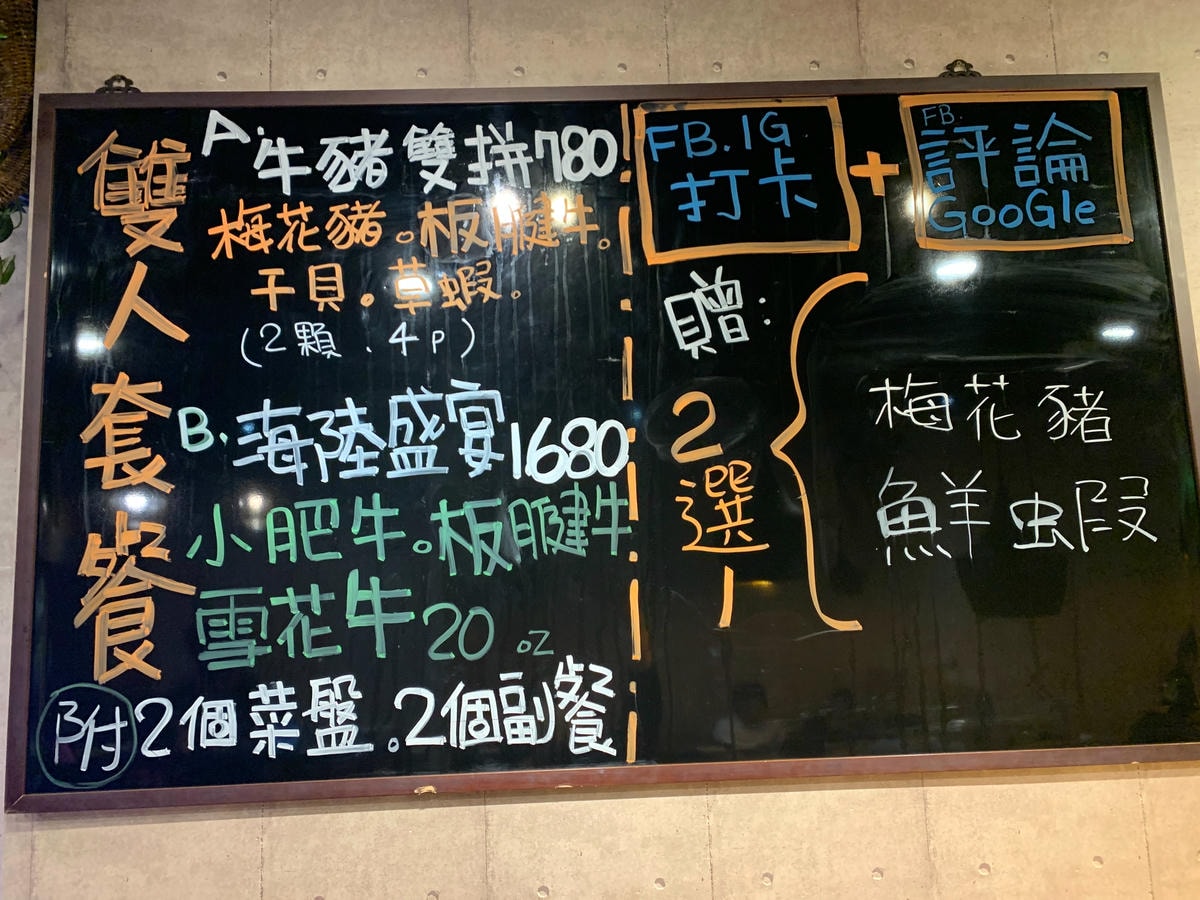 雙人套餐
A. 牛豬雙拼780
梅花豬。板腱牛。
干貝。草蝦。
(2顆.4P)
B. 海陸盛宴1680
小肥牛。板腱牛
雪花牛20oz
附2個菜盤.2個副餐
FB.IG
打卡
+
FB.
評論
GooGle
贈:
2選1
梅花豬
鮮蝦